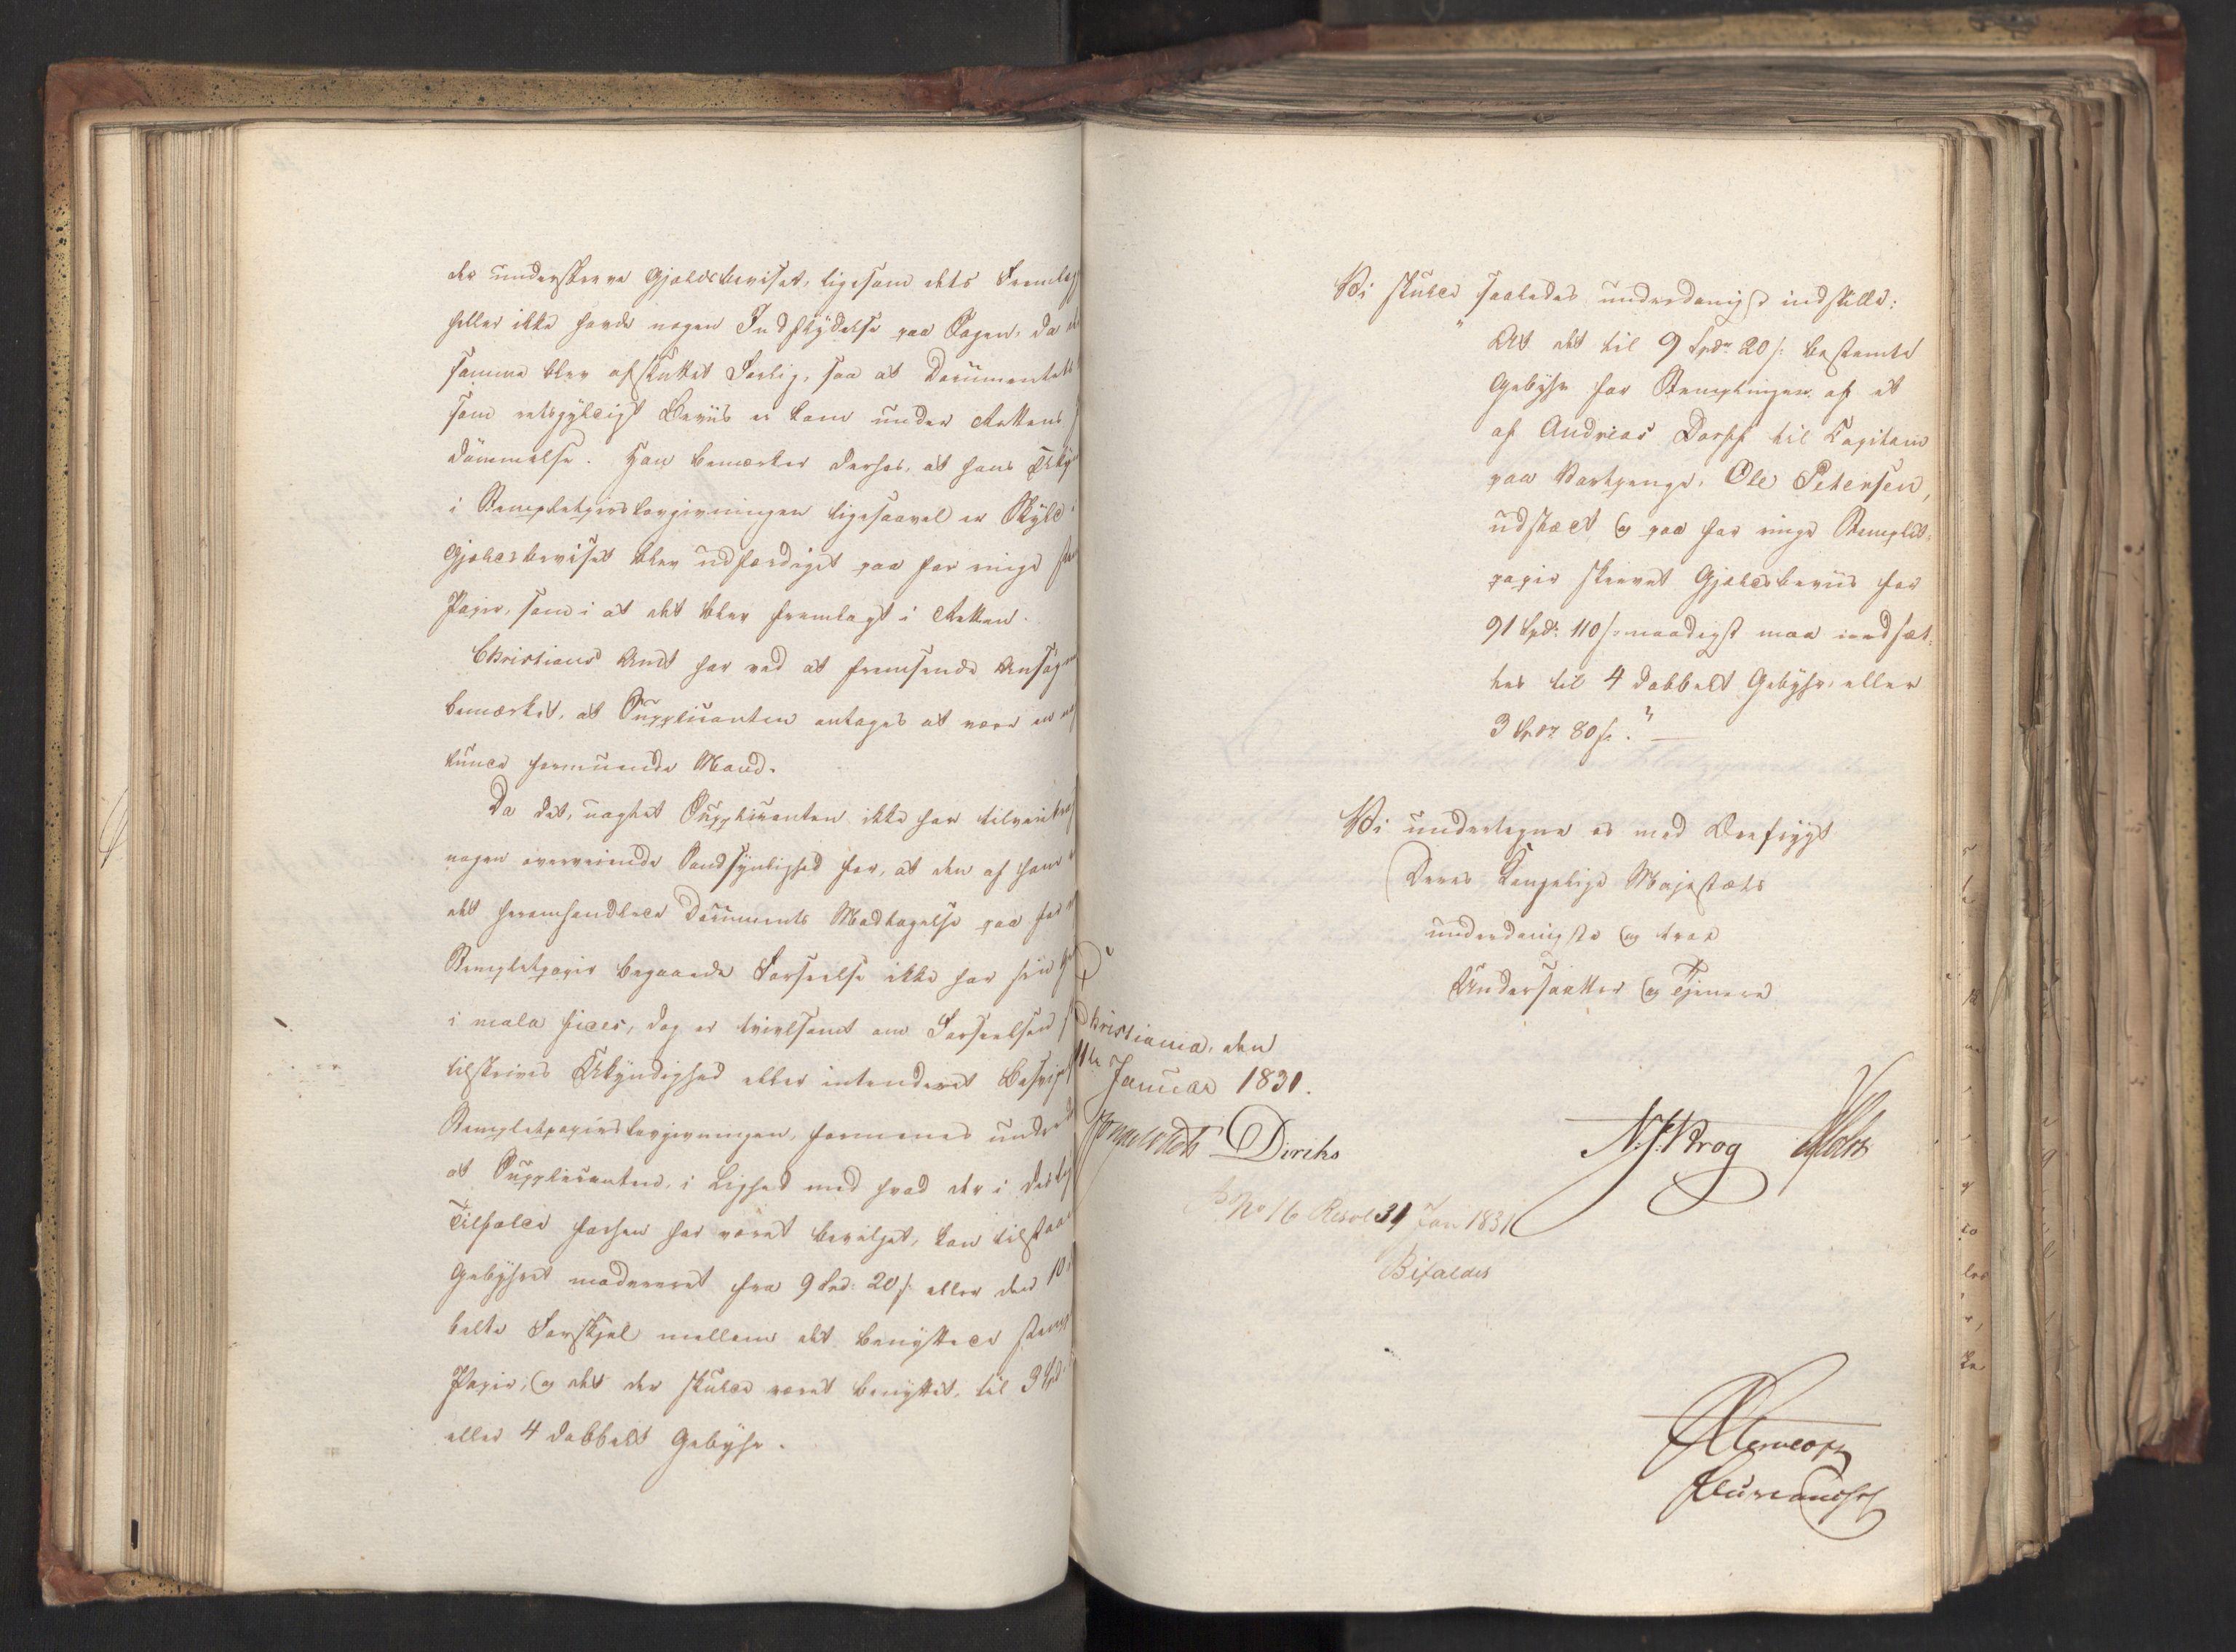 der underskrev Gjeldsbeviset, ligesom dets Fremlæg
heller ikke havde nogen Indflydelse paa Sagen, da
samme blev afsluttet forlig, saa at Documentet
som retsgyldigt Beviis ei kom under Rettens
Dømmelse. Han bemærker derhos, at hans Uky
i Stempletpapiirslovgivningen ligesaavel er Skyld i
Gjeldsbeviset blev udfærdiget paa for ringe
Papir, som i at det blev fremlagt i Retten.
Christians Amt har ved at fremsende Ansøgn
bemærket, at Supplicanten antages at være en
lunde formuende Mand.
Da det, uagtet Supplicanten ikke har tilveiebrag
nogen overveiende Sandsynlighed for, at den af ham
det heromhandlede Documents Modtagelse paa for
Stempletpapir begaaede Forseelse ikke har sin
i mala fides, dog er tvivlsomt om Forseelsen
tilskrives Ukyndighed eller intenderet Besvigel
Stempletpapiirslovgivningen, formenes under
at Supplicanten, i Lighed med hvad der i deslig
Tilfælde forhen har været bevilget, kan tilstaa
Gebyhret modereret fra 9 Spd: 20 s. eller den 10
belte Forskjel mellem det benyttede stemp
Papir, og det der skulde været benyttet, til 3 Spd:
eller 4 dobbelt Gebyhr.
Vi skulde saaledes underdanigst indstille:
"At det til 9 Spdr 20 s: bestemte
Gebyhr for Stemplingen af et
af Andreas Dorff til Capitain
paa Vartpenge, Ole Petersen,
udstædt og paa for ringe Stemplet-
papir skrevet Gjeldsbeviis for
91 Spd: 110 s. naadigst maa nedsæt-
tes til 4 dobbelt Gebyhr, eller
3 Spdr 80 s."
Vi undertegne os med Ærefrygt
Deres Kongelige Majestæts
underdanigste og troe
Undersaatter og Tjenere
Christiania, den
11te Januar 1831.
Diriks
N. J. Krog
No 16 Resol 31 Jan 1831
Bifaldes